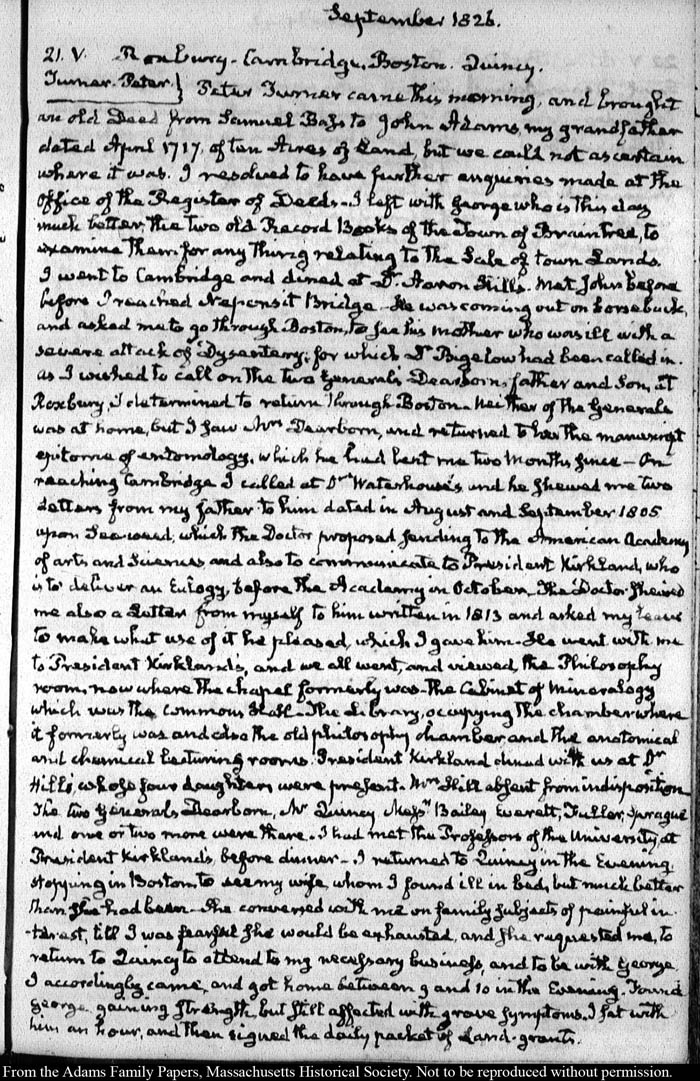 September 1826.
21. V. Roxbury. Cambridge. Boston. Quincy.
Turner. Peter} Peter Turner came this morning, and brought
an old Deed from Samuel Bass to John Adams, my grandfather
dated April 1717. of ten Acres of Land, but we could not ascertain
where it was. I resolved to have further enquiries made at the
Office of the Register of Deeds. I left with George who is this day
much better, the two old Record Books of the Town of Braintree, to
examine them for any thing relating to the Sale of town Lands.
I went to Cambridge and dined at Dr. Aaron Hills. Met John before
before I reached Neponsit Bridge. He was coming out on horseback,
and asked me to go through Boston, to see his Mother who was ill with a
severe attack of Dysentery; for which Dr Bigelow had been called in.
as I wished to call on the two General's Dearborn, father and Son, at
Roxbury, I determined to return through Boston. Neither of the Generals
was at home, but I saw Mrs Dearborn, and returned to her the manuscript
epitome of entomology, which he had lent me two months since — On
reaching Cambridge I called at Dr Waterhouse's and he shewed me two
Letters from my father to him dated in August and September 1805
upon Sea-weed; which the Doctor proposed sending to the American Academy
of arts and Sciences and also to communicate to President Kirkland, who
is to deliver an Eulogy, before the Academy in October. The Doctor shewed
me also a Letter from myself to him written in 1813 and asked my leave
to make what use of it he pleased, which I gave him. He went with me
to President Kirkland's, and we all went, and viewed, the Philosophy
room, now where the chapel formerly was. The Cabinet of Mineralogy
which was the Commons Hall. The Library, occupying the chamber where
it formerly was and also the old philosophy chamber and the anatomical
and chemical lecturing rooms. President Kirkland dined with us at Dr
Hill's, whose four daughters were present. Mrs Hill absent from indisposition
The two Generals Dearborn, Mr Quincy, Messrs Bailey, Everett, Fuller, Sprague
and one or two more were there. I had met the Professors of the University at
President Kirkland's, before dinner — I returned to Quincy in the Evening
stopping in Boston, to see my wife, whom I found ill in bed, but much better
than she had been. She conversed with me on family subjects of painful in-
terest, till I was fearful she would be exhausted, and she requested me, to
return to Quincy to attend to my necessary business, and to be with George
I accordingly came, and got home between 9 and 10 in the Evening. Found
George gaining strength, but still affected with grave symptoms. I sat with
him an hour, and then signed the daily packet of Land-grants.
From the Adams Family Papers, Massachusetts Historical Society. Not to be reproduced without permission.